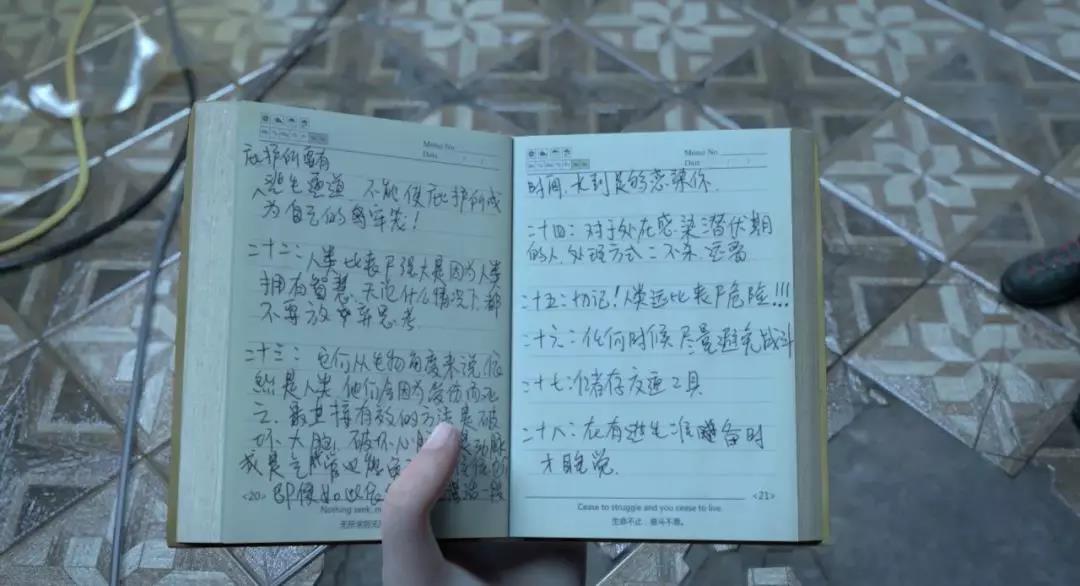 Memo No.
Date / /
庇护所要有
逃生通道 不能使庇护所成
为自己的牢笼！
二十二：人类比丧尸强大是因为人类
拥有智慧，无论什么情况下，都
不要放弃思考
二十三：它们从生物角度来说依
然是人类 他们会因为受伤而死
亡，最直接有效的方法是破
坏大脑，破坏心
或是气管也能
即使如此
一段
<20>
Nothing seek,
无所求则无
Memo No.
Date / /
时间，大到足够感染你
二十四：对于处在感染潜伏期
的人，处理方式：
二十五：切记！人类远比丧尸危险!!!
二十六：任何时候尽量避免战斗
二十七：储存交通工具
二十八：在有逃生准备时
才睡觉.
<21>
Cease to struggle and you cease to live.
生命不止，奋斗不息。